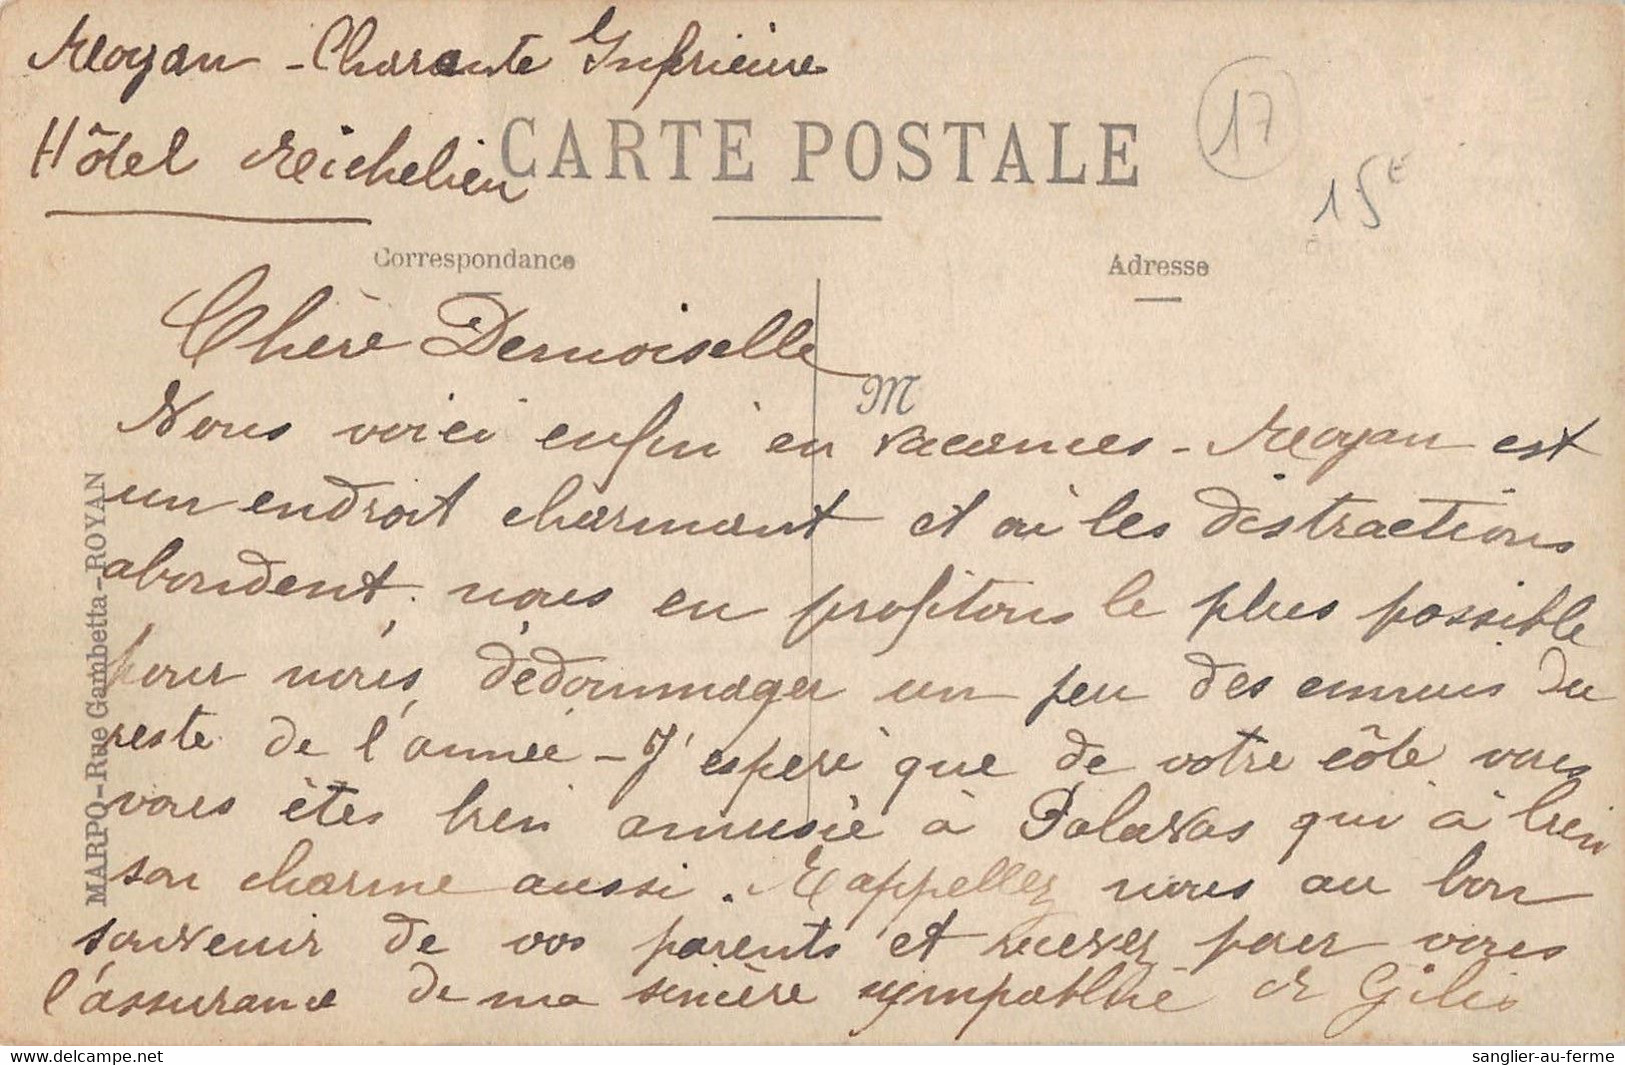 Royan - Charante Inférieure
Hôtel Richelieu
CARTE POSTALE
17
15€
Correspondance
Adresse
Chère Demoiselle
M
Nous voici enfin en vacances - Royan est
un endroit charmant et où les distractions
abondent. nous en profitons le plus possible
pour nous dédommager un peu des ennuis du
reste de l'année - J'espère que de votre côté vous
vous êtes bien amusée à Palavas qui à bien
son charme aussi. Rappellez nous au bon
souvenir de vos parents et recevez pour vous
l'assurance de ma sincère sympathie R Gilis
MARPO-Rue Gambetta-ROYAN
www.delcampe.net
sanglier-au-ferme